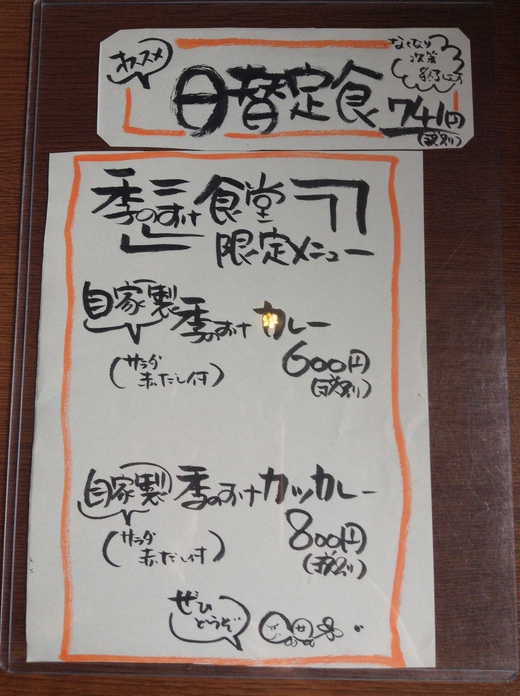 オススメ
なくなり
次第
終了です
日替定食 741円
(税別)
季のすけ食堂
限定メニュー
自家製 季のすけ カレー
(サラダ
赤だし付)
600円
(税別)
自家製 季のすけ カツカレー
(サラダ
赤だし付)
800円
(税別)
ぜひ
どうぞ